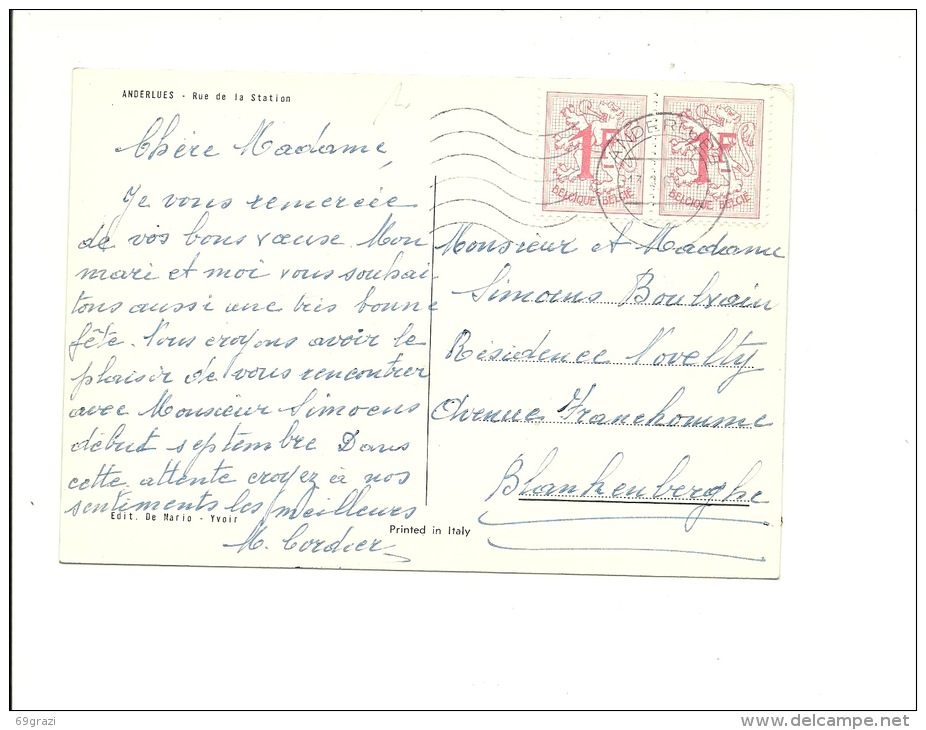 ANDERLUES - Rue de la Station
Chère Madame,
Je vous remercie
de vos bons vœux. Mon
mari et moi vous souhai-
tons aussi une très bonne
fête. Nous croyons avoir le
plaisir de vous rencontrer
avec Monsieur Simoens
début septembre. Dans
cette attente croyez à nos
sentiments les meilleurs
M. Cordier
Edit. De Mario - Yvoir
Printed in Italy
1F
BELGIQUE BELGIË
1F
BELGIQUE BELGIË
Monsieur et Madame
Simoens
Résidence Novelty
Avenue Franchomme
Blankenberghe
69grazi
delcampe.net